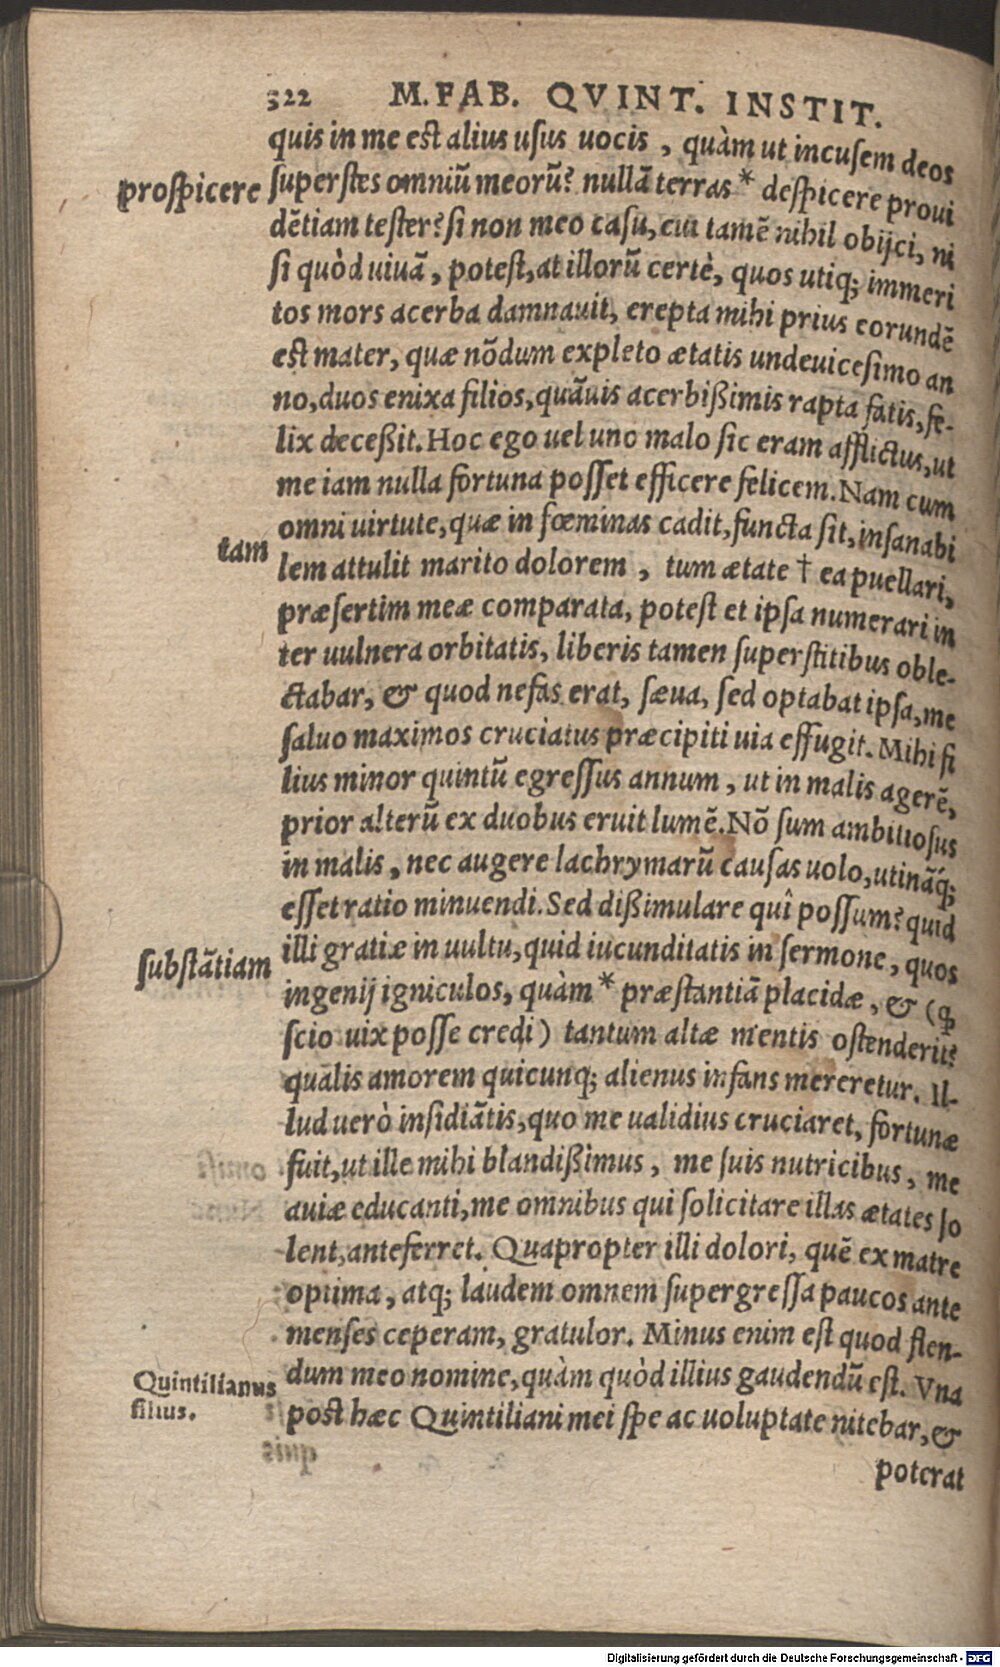 322 M. FAB. QVINT. INSTIT.
quis in me est alius usus uocis, quàm ut incusem deos
prospicere
superstes omniũ meorũ? nullã terras * despicere proui
dẽtiam tester? si non meo casu, cui tamẽ nihil obijci, ni
si quòd uiuã, potest, at illorũ certè, quos utiq; immeri
tos mors acerba damnauit, erepta mihi prius eorundẽ
est mater, quæ nõdum expleto ætatis undeuicesimo an
no, duos enixa filios, quãuis acerbißimis rapta fatis, fe-
lix deceßit. Hoc ego uel uno malo sic eram afflictus, ut
me iam nulla fortuna posset efficere felicem. Nam cum
omni uirtute, quæ in fœminas cadit, functa sit, insanabi
tam
lem attulit marito dolorem, tum ætate † ea puellari,
præsertim meæ comparata, potest et ipsa numerari in
ter uulnera orbitatis, liberis tamen superstitibus oble-
ctabar, & quod nefas erat, sæua, sed optabat ipsa, me
saluo maximos cruciatus præcipiti uia effugit. Mihi fi
lius minor quintũ egressus annum, ut in malis agerẽ,
prior alterũ ex duobus eruit lumẽ. Nõ sum ambitiosus
in malis, nec augere lachrymarũ causas uolo, utinãq́;
esset ratio minuendi. Sed dißimulare quî possum? quid
illi gratiæ in uultu, quid iucunditatis in sermone, quos
substãtiam
ingenij igniculos, quàm * præstantiã placidæ, & (ꝙ
scio uix posse credi) tantum altæ mentis ostenderit?
qualis amorem quicunq; alienus infans mereretur. Il-
lud uerò insidiãtis, quo me ualidius cruciaret, fortunæ
fuit, ut ille mihi blandißimus, me suis nutricibus, me
auiæ educanti, me omnibus qui solicitare illas ætates so
lent, anteferret. Quapropter illi dolori, quẽ ex matre
optima, atq; laudem omnem supergressa paucos ante
menses ceperam, gratulor. Minus enim est quod flen-
dum meo nomine, quàm quòd illius gaudendũ est. Vna
Quintilianus
filius.
post hæc Quintiliani mei spe ac uoluptate nitebar, &
poterat
Digitalisierung gefördert durch die Deutsche Forschungsgemeinschaft - DFG